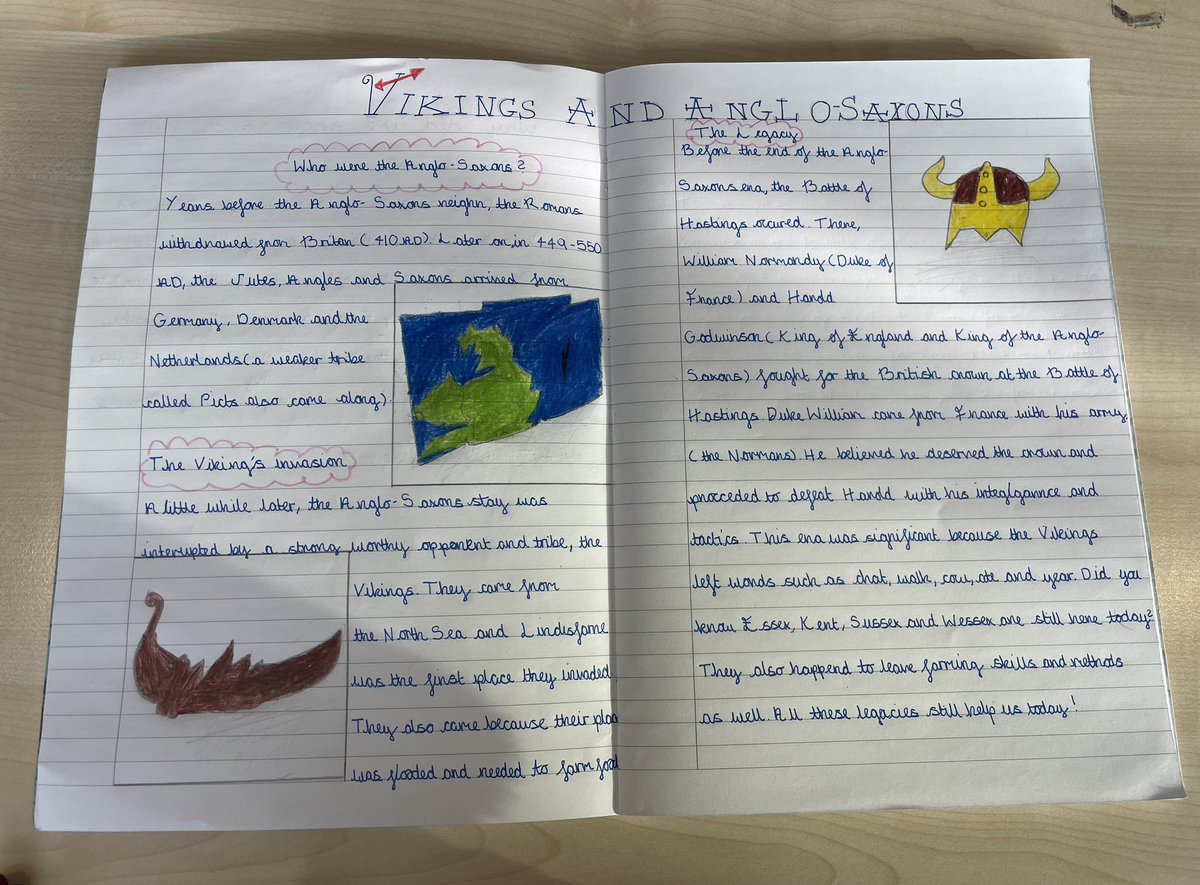 VIKINGS AND ANGLO-SAXONS
Who were the Anglo-Saxons?
Years before the Anglo-Saxons reighn, the Romans
withdrawed from Britan (410 AD). Later on, in 449-550
AD, the Jutes, Angles and Saxons arrived from
Germany, Denmark and the
Netherlands (a weaker tribe
called Picts also came along).
The Viking's invasion
A little while later, the Anglo-Saxons stay was
interupted by a strong worthy opponent and tribe, the
Vikings. They came from
the North Sea and Lindisfarne
was the first place they invaded
They also came because their place
was flooded and needed to farm food
The Legacy
Before the end of the Anglo-
Saxons era, the Battle of
Hastings occured. There,
William Normandy (Duke of
France) and Harold
Godwinson (King of England and King of the Anglo-
Saxons) fought for the British crown at the Battle of
Hastings. Duke William came from France with his army
(the Normans). He believed he deserved the crown and
procceded to defeat Harold with his and
tactics. This era was significant because the Vikings
left words such as chat, walk, cow, ate and year. Did you
know Essex, Kent, Sussex and Wessex are still here today?
They also happend to leave farming skills and methods
as well. All these legacies still help us today!